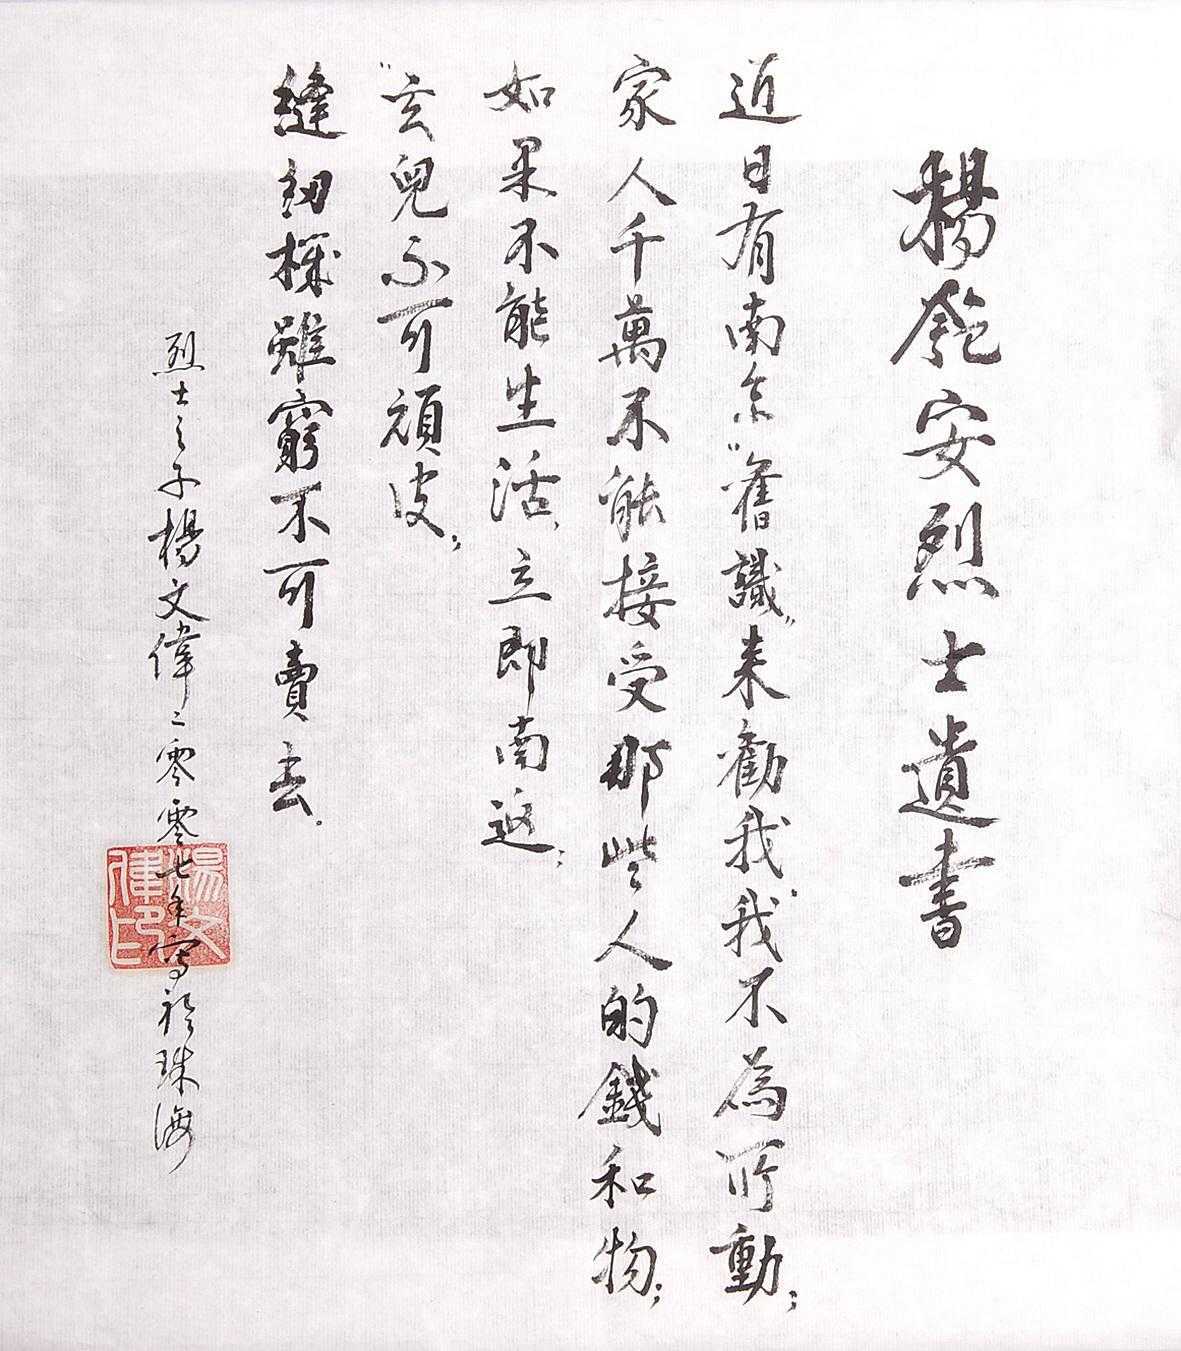 楊匏安烈士遺書
近日有南京“舊識”来勸我,我不為所動;
家人千萬不能接受那些人的錢和物;
如果不能生活,立即南返;
“玄兒”不可頑皮;
縫紉機雖窮不可賣去。
烈士之子楊文偉二零零七年寫於珠海
楊文偉印